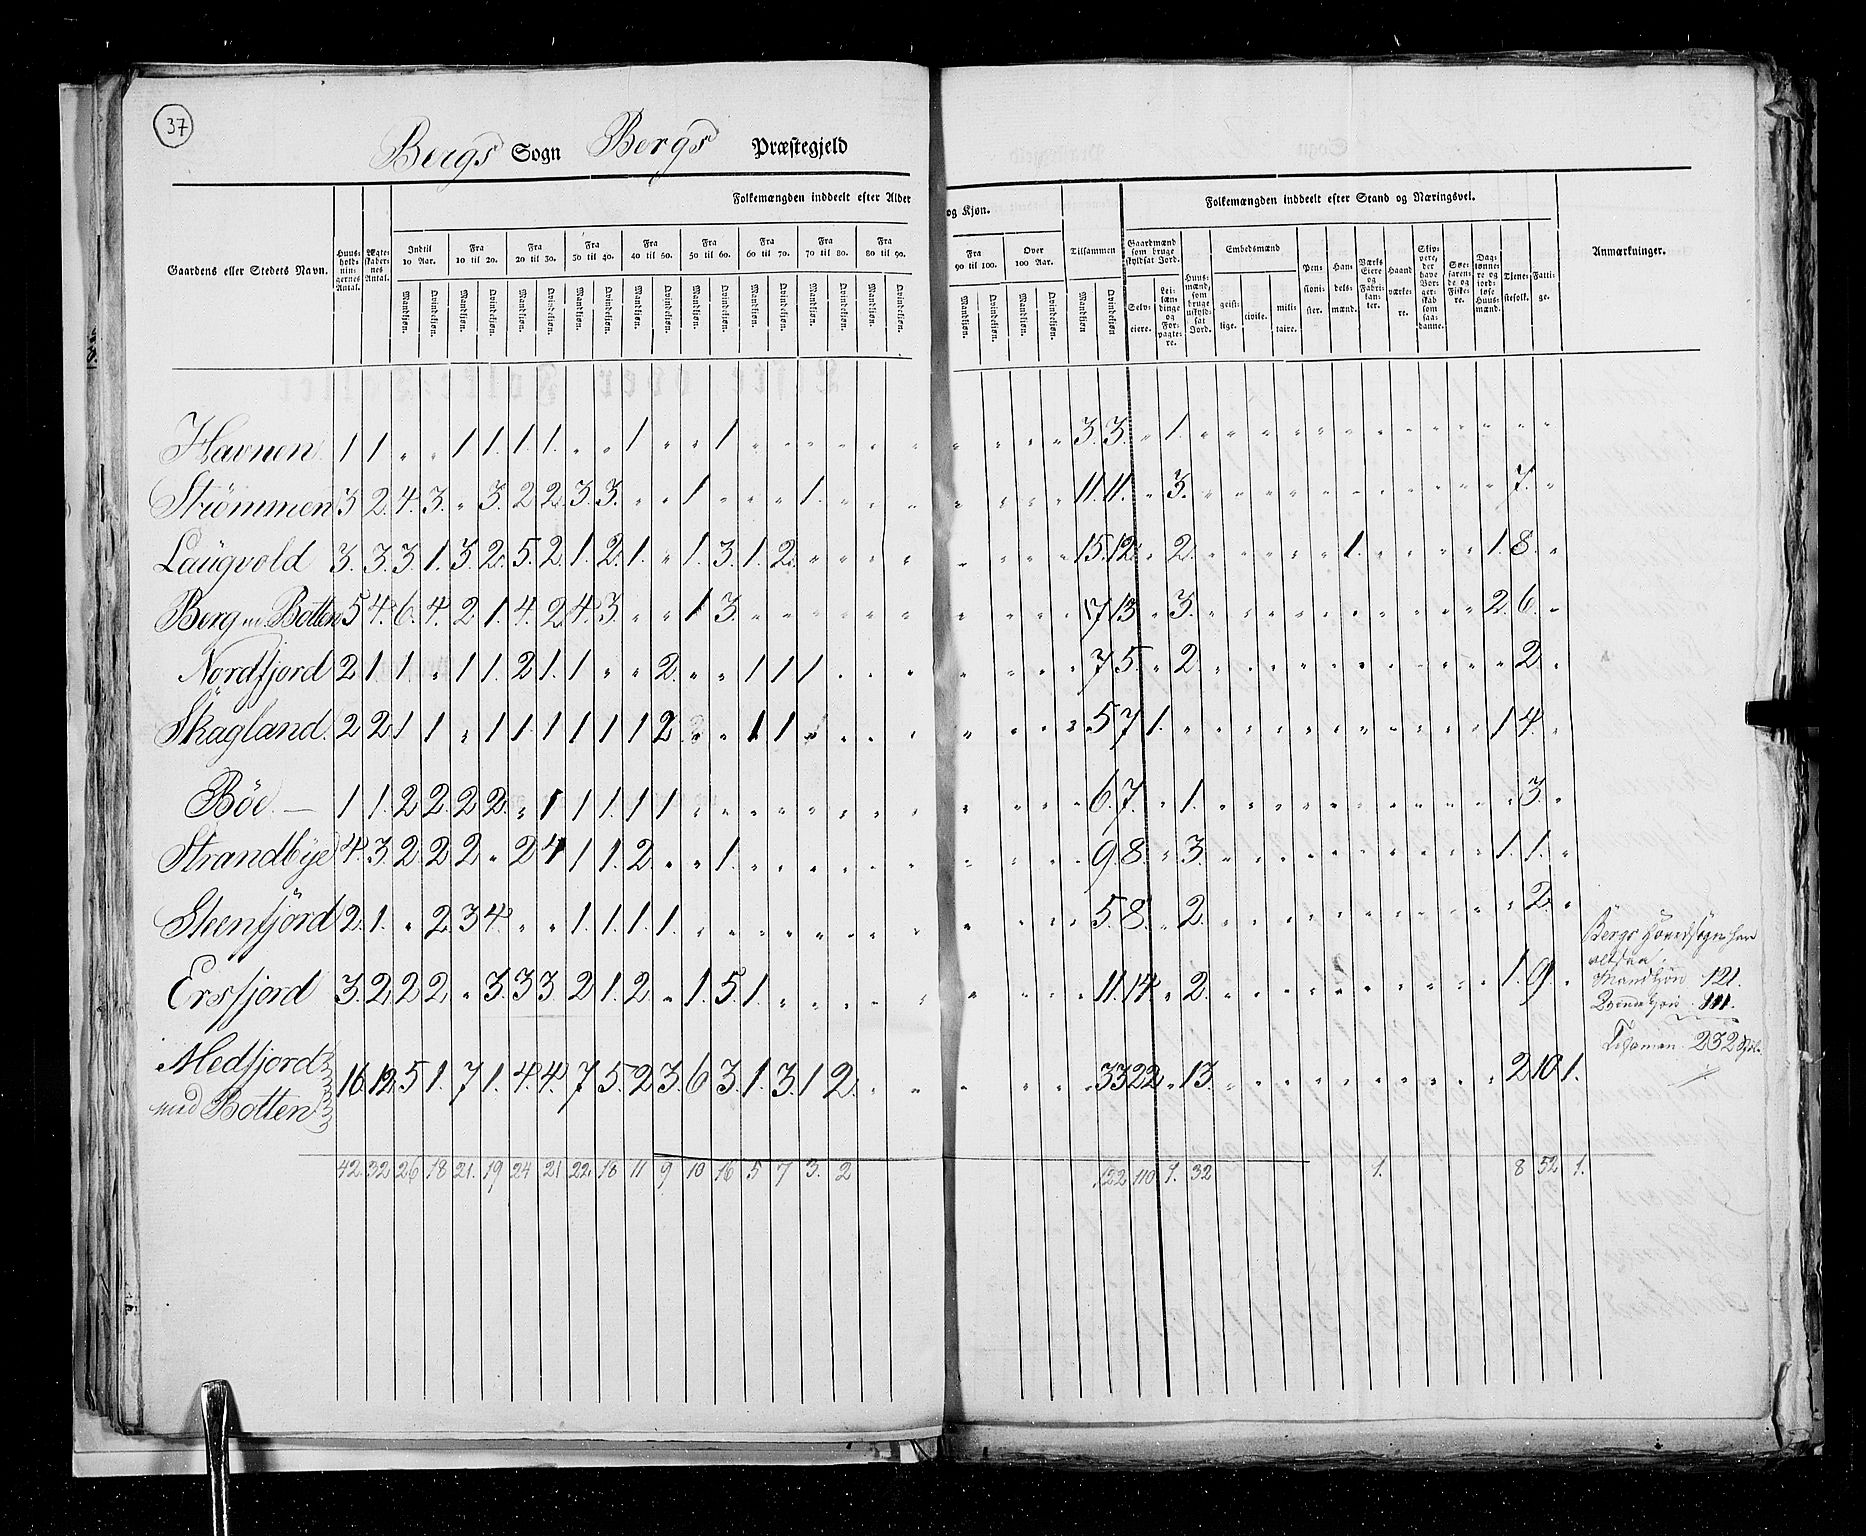 37
Bergs Sogn Bergs Præstegjeld
Folkemængden inddeelt efter Alder og Kjøn.
Folkemængden inddeelt efter Stand og Næringsvei.
Gaardens eller Stedets Navn.
Huus-hold-nin-gernes Antal.
Ægte-skaber-nes Antal.
Indtil 10 Aar.
Fra 10 til 20.
Fra 20 til 30.
Fra 30 til 40.
Fra 40 til 50.
Fra 50 til 60.
Fra 60 til 70.
Fra 70 til 80.
Fra 80 til 90.
Fra 90 til 100.
Over 100 Aar.
Tilsammen
Gaardmænd som bruge skyldsat Jord.
Huus-mænd, som bruge uskyld-sat Jord.
Embedsmænd
Pen-sioni-ster.
Han-dels-mænd.
Værks Eiere og Fabri-kan-ter.
Haand værke-re.
Skip-pere, der have Bor-ger-skab som saa-danne.
Søe-faren-de og Fiske-re.
Dag-lønne-re og jord-løse Huus-mænd.
Tjene-stefolk.
Fatti-ge.
Anmærkninger.
Mandkjøn. Qvindekjøn. Mandkjøn. Qvindekjøn. Mandkjøn. Qvindekjøn. Mandkjøn. Qvindekjøn. Mandkjøn. Qvindekjøn. Mandkjøn. Qvindekjøn. Mandkjøn. Qvindekjøn. Mandkjøn. Qvindekjøn. Mandkjøn. Qvindekjøn. Mandkjøn. Qvindekjøn. Mandkjøn. Qvindekjøn. Mandkjøn Qvindekjøn
Selv-eiere.
Lei-læn-dinge og For-pagte-re.
geist-lige.
civile.
mili-taire.
Havnen 1 1 " " 1 1. 1. 1. " " 1 " " 1 " " " " " " " " " " 3. 3. " 1. " " " " " " " " " " " " "
Strömmen 3 2. 4. 3. " 3. 2 2. 3. 3. " " 1 " " " 1. " " " " " " " 11. 11. " 3. " " " " " " " " " " " 7. "
Laugvold 3. 3. 3 1. 3. 2. 5. 2. 1. 2. 1. " 1. 3. 1. 2. " " " " " " " " 15. 12. " 2. " " " " " 1. " " " " 1. 8. "
Berg m. Botten 5 4. 6. 4. 2 1. 4. 2. 4. 3. " " 1 3. " " " " " " " " " " 17 13. " 3. " " " " " " " " " " 2. 6. "
Nordfjord 2 1 1. " 1 1. 2 1. 1 " " 2. " " 1 1 1 " " " " " " " 7. 5. " 2. " " " " " " " " " " " 2. "
Skagland. 2 2 1 1 " 1 1. 1 1 1 1 2 " " 1 1 " " " " " " " " 5. 7 1. " " " " " " " " " " " 1 4. "
Böe — 1 1. 2 2. 2 2. " 1 1 1. 1 1. " " " " " " " " " " " " 6. 7. " 1. " " " " " " " " " " " 3. "
Strandbye 4. 3. 2 2. 2 " 2 4 1 1. 2. " " 1. " " " " " " " " " " 9. 8. " 3. " " " " " " " " " " 1. 1. "
Steenfjord 2. 1. " 2. 3 4. " " 1. 1. 1. 1. " " " " " " " " " " " " 5. 8. " 2. " " " " " " " " " " " 2. "
Ersfjord 3. 2. 2 2. " 3. 3 3. 2 1. 2. " 1. 5. 1. " " " " " " " " " 11. 14. " 2. " " " " " " " " " " 1. 9. "
Medfjord
med Botten 16. 12. 5 1. 7 1. 4. 4. 7 5. 2 3. 6 3. 1. 3. 1 2. " " " " " " 33 22. " 13. " " " " " " " " " " 2 10. 1.
42. 32. 26 18 21. 19 24 21 22. 18 11 9 10 16 5 7 3. 2 122 110 1. 32 1. 8 52 1.
Bergs Hovedsogn har
altsaa
Mandkjön 121.
Qvindekjön. 111.
Tilsamen 232